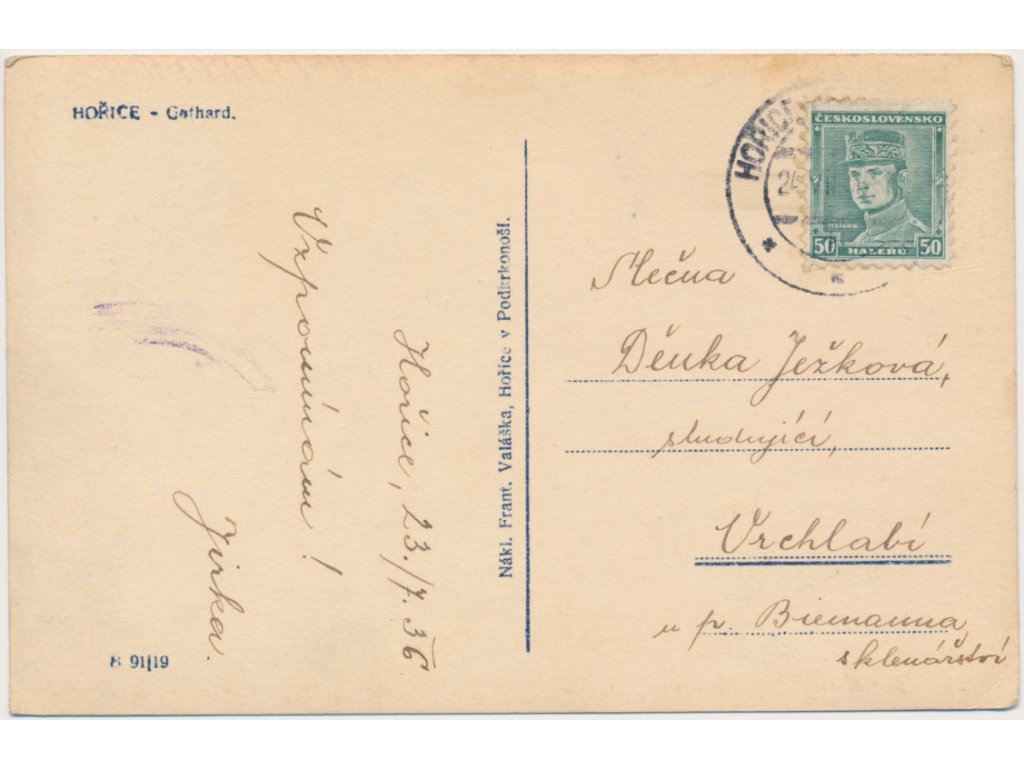 HOŘICE - Gothard.
Vzpomínám!
Hořice, 23./7. 36
Jirka.
B 91|19
Nákl. Frant. Valáška, Hořice v Podkrkonoší.
HOŘICE
24
ČESKOSLOVENSKO
ŠTEFÁNIK
50 HALÉŘŮ 50
Slečna
Děnka Ježková,
studující,
Vrchlabí
u p. Biemanna,
sklenářství